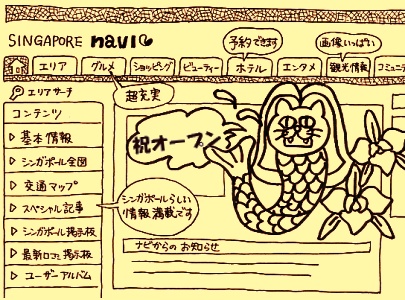 SINGAPORE navi
予約できます
画像いっぱい
エリア
グルメ
ショッピング
ビューティー
ホテル
エンタメ
観光情報
コミュニ
エリアサーチ
超充実
コンテンツ
基本情報
シンガポール全図
交通マップ
スペシャル記事
シンガポール掲示板
最新口コミ掲示板
ユーザーアルバム
祝オープン
シンガポールらしい
情報満載です
ナビからのお知らせ